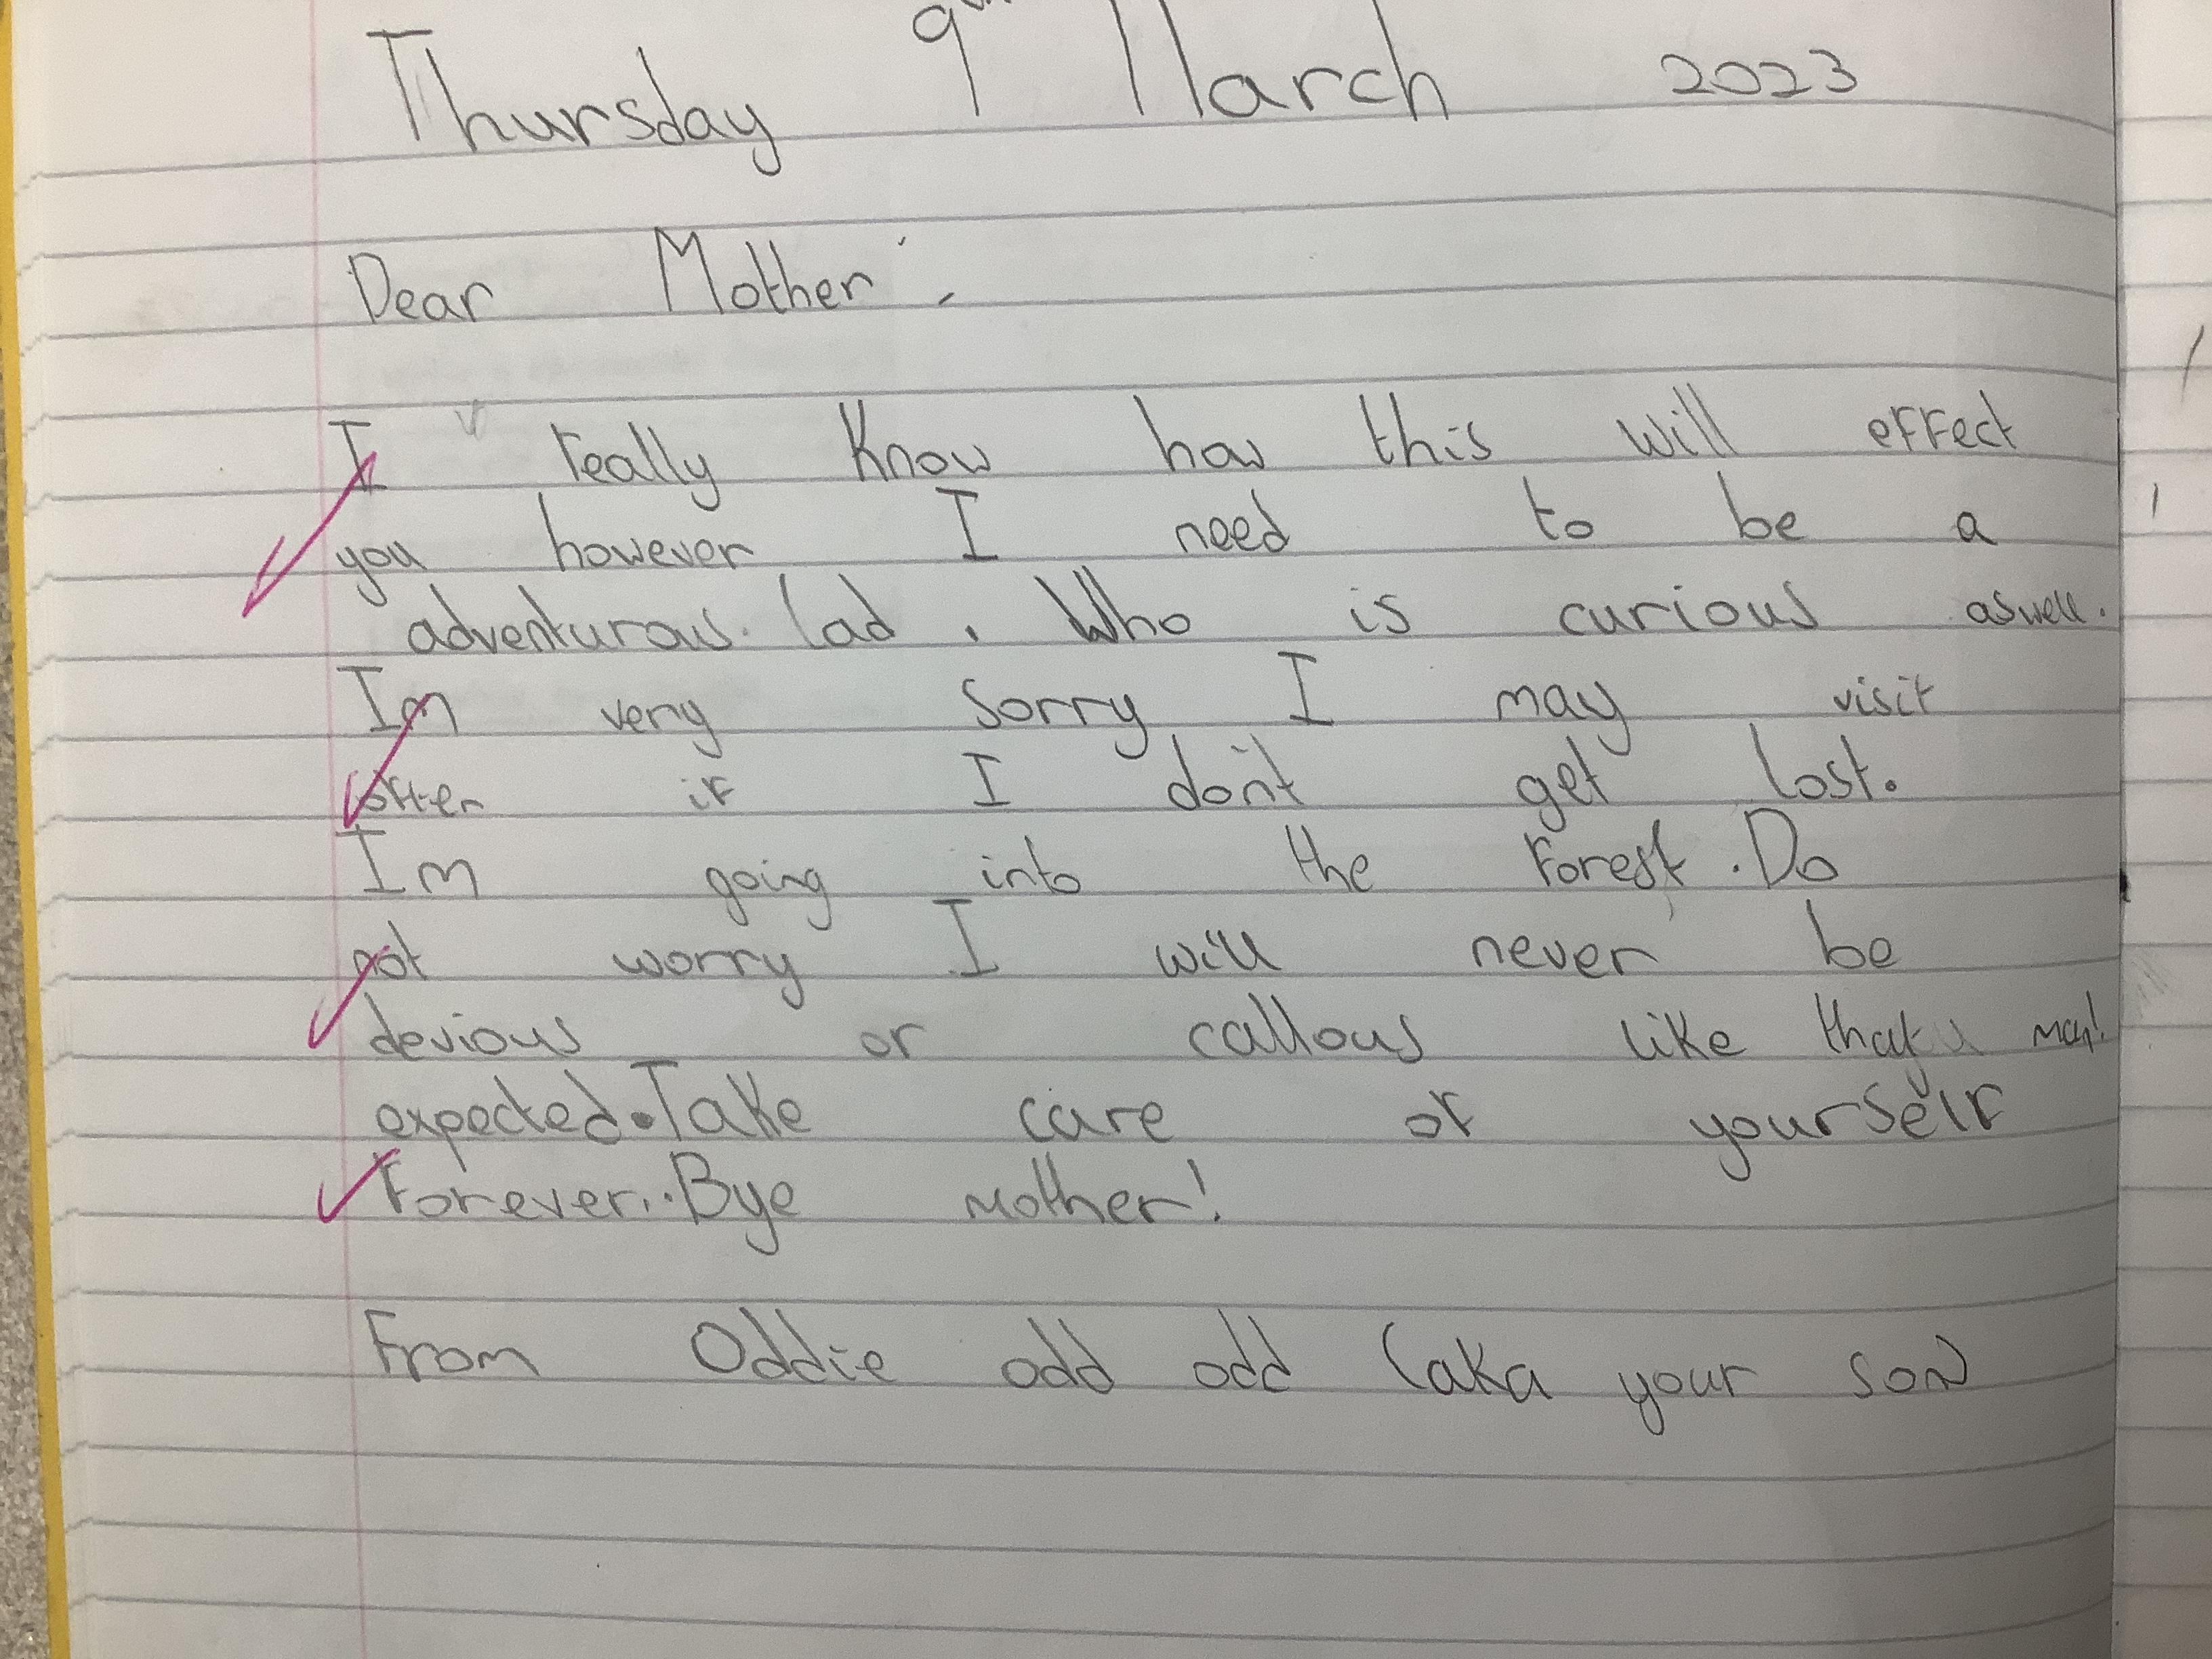 Thursday 9th March 2023
Dear Mother,
I really know how this will effect
you however I need to be a
adventurous. lad. Who is curious aswell.
Im very sorry I may visit
often if I don't get lost.
Im going into the forest. Do
not worry I will never be
devious or callous like that man!
expected. Take care of yourself
forever... Bye mother!
From Oddie odd odd (aka your son